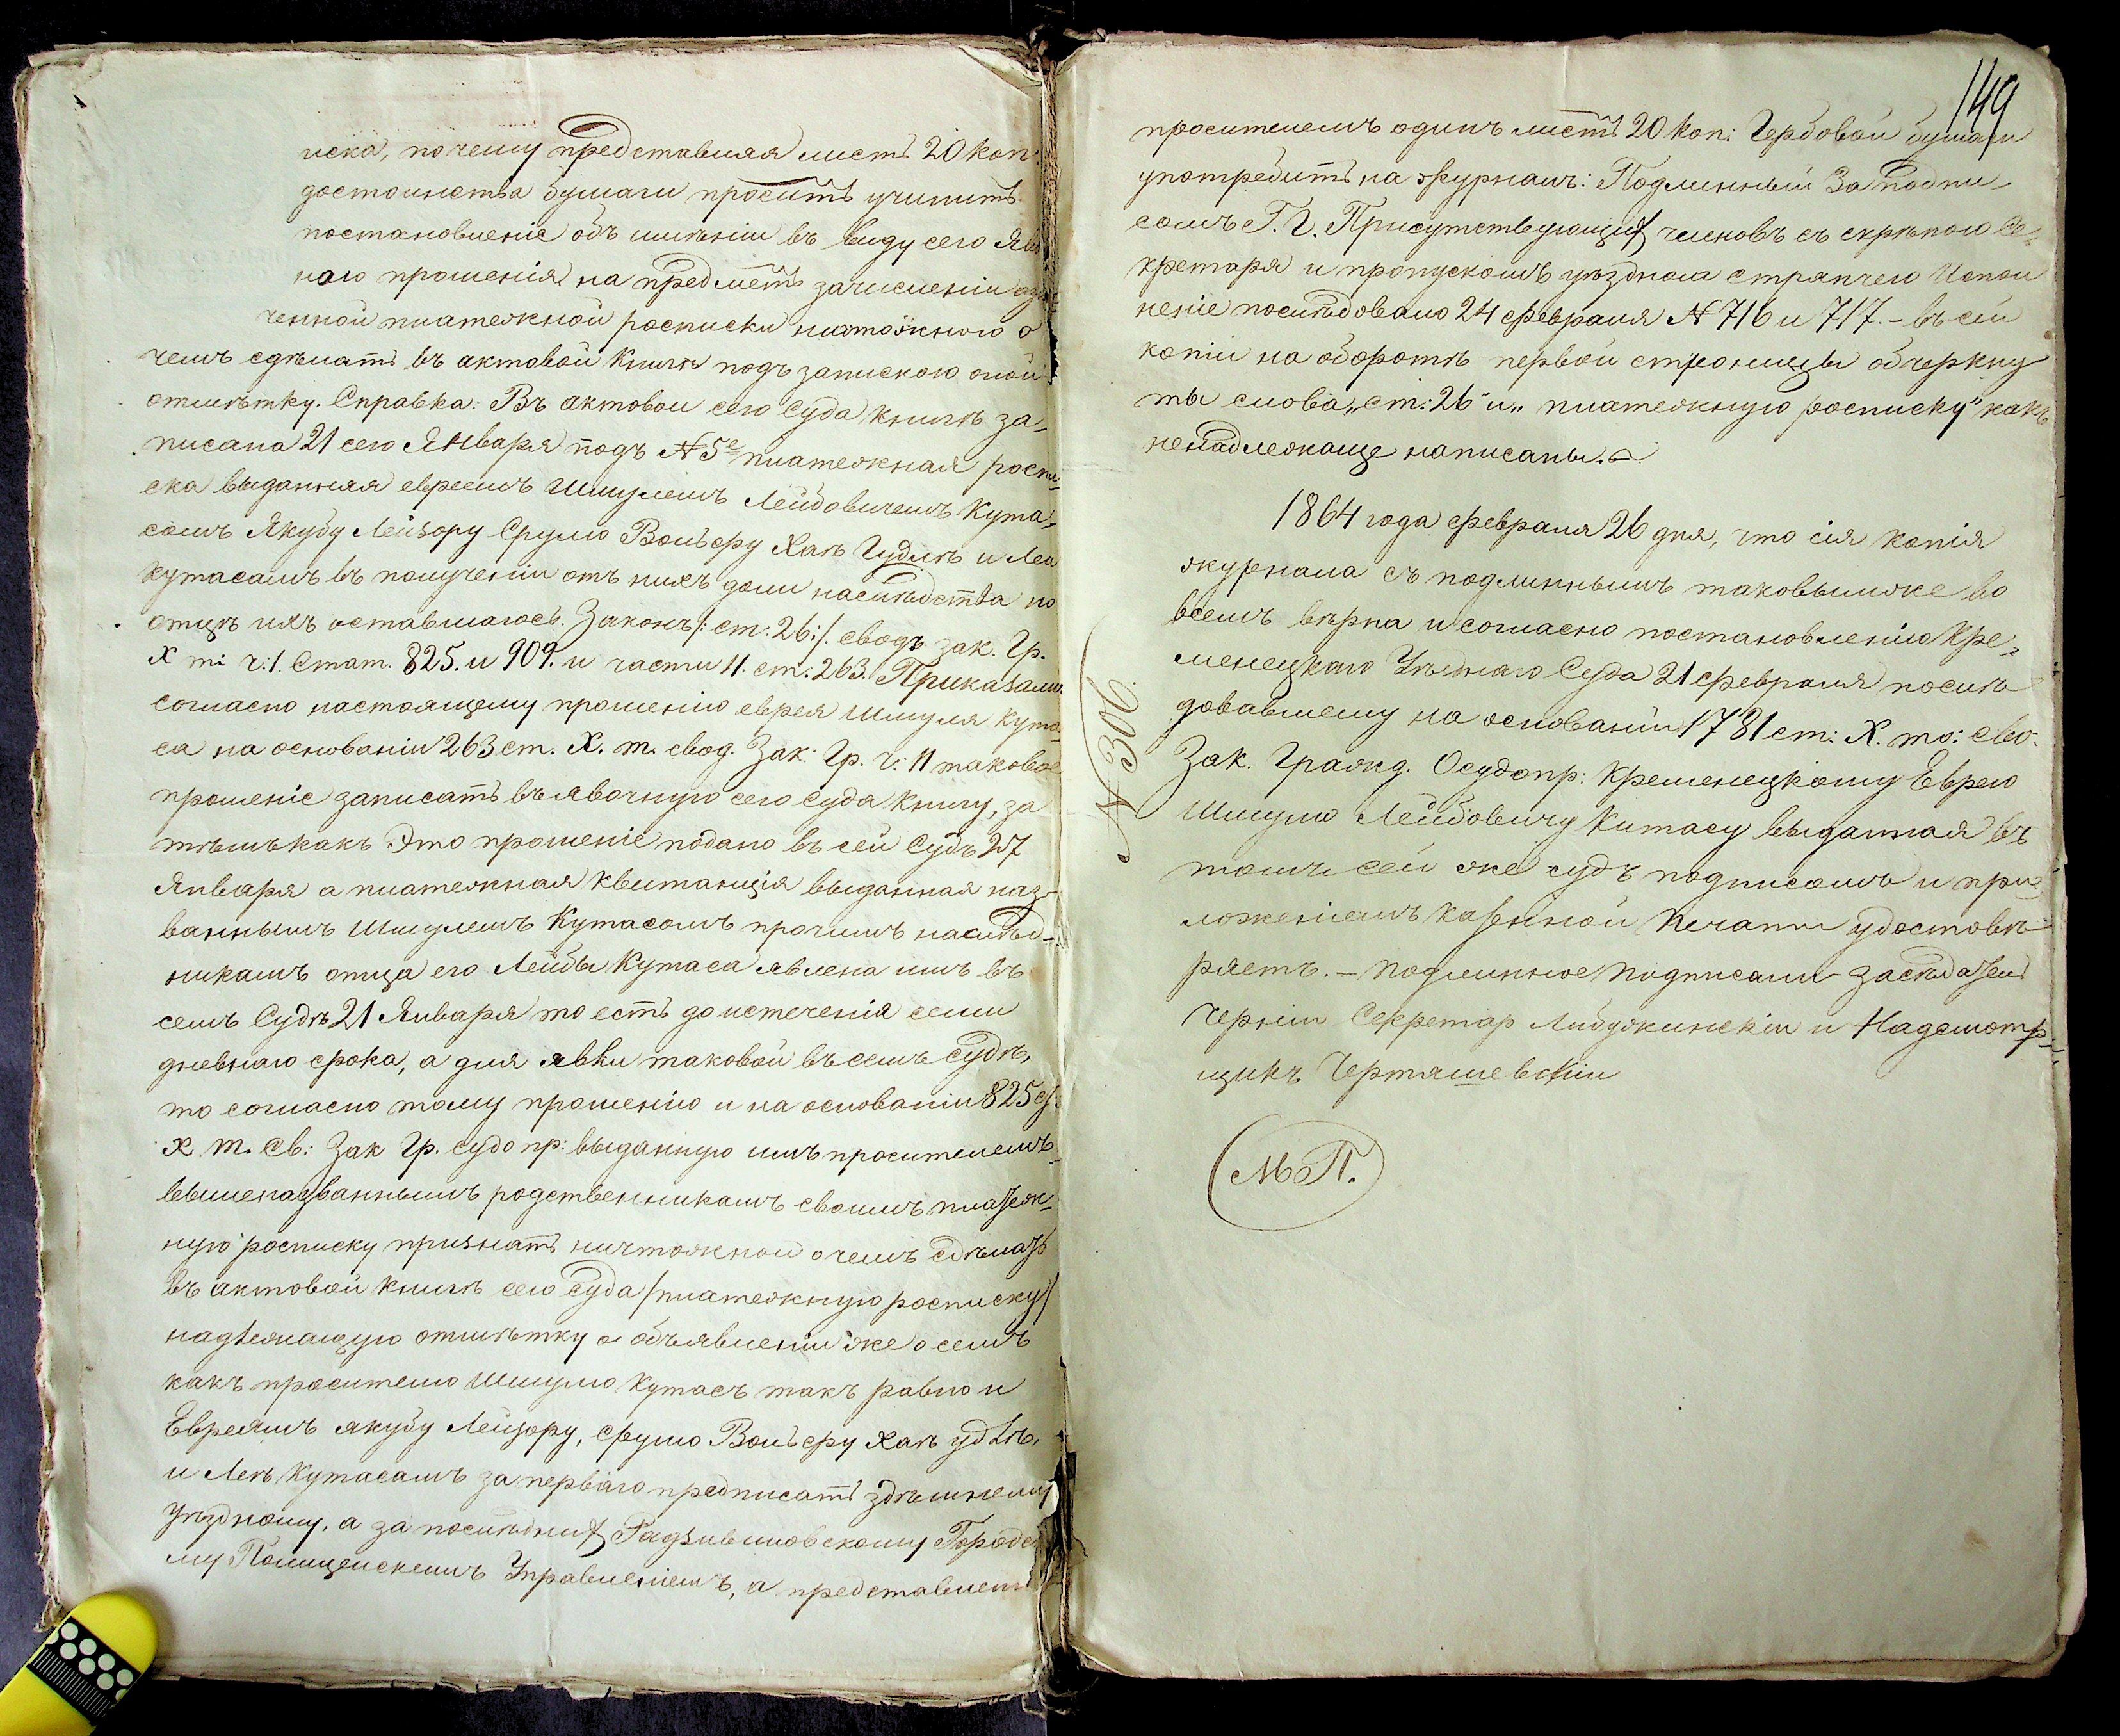 иска, по чему представляя листъ 20 коп:
достоинства бумаги проситъ учинить
постановленіе объ имѣніи въ виду сего Явоч
наго прошенія на предметъ зачисленіи озна
ченной платежной росписки ничтожною о
чемъ сдѣлать въ актовой Книгѣ подъ запискою оной
отмѣтку. Справка: Въ актовой сего Суда книгѣ за-
писана 21 сего Января подъ № 5е платежная роспи-
ска выданная евреемъ Шмулемъ Лейбовичемъ Кута-
сомъ Якубу Лейзору Срулю Вольфу Хаѣ Гудлѣ и Леи
Кутасамъ въ полученіи отъ нихъ доли наслѣдства по
отцѣ ихъ оставшагося. Законъ /: ст: 26 :/. сводъ зак. Гр.
X т: ч: 1. Стат. 825. и 909. и части 11. ст: 263. Приказали:
согласно настоящему прошенію еврея Шмуля Кута-
са на основаніи 263 ст. X. т. свод. Зак: Гр. ч: 11 таковое
прошеніе записать въ явочную сего Суда книгу, за
тѣмъ какъ Это прошеніе подано въ сей Судъ 27
Января а платежная квитанція выданная наз-
ваннымъ Шмулемъ Кутасомъ прочимъ наслѣд-
никамъ отца его Лейбы Кутаса явлена имъ въ
семъ Судѣ 21 Января то есть до истеченія семи
дневнаго срока, а для явки таковой въ семъ Судѣ,
то согласно тому прошенію и на основаніи 825 ст:
X. т. Св: Зак Гр. судопр: выданную имъ просителемъ
вышеназваннымъ родственникамъ своимъ платеж-
ную росписку признать ничтожной о чемъ сдѣлать
въ актовой книгѣ сего Суда /платежную росписку/
надлежащую отмѣтку о объявленіи же о семъ
какъ просителю Шмулю Кутасъ такъ равно и
Евреямъ Якубу Лейзору, Срулю Вольфу Хаѣ
и Леѣ Кутасамъ за перваго предписать здѣшнему
уѣздному, а за послѣдних Радзивиловскому Городско
му Полицейскимъ Управленіемъ, а представлен
149
просителемъ одинъ листъ 20 коп: Гербовой бумаги
употребить на журналъ: Подлинный За подпи-
сомъ Г. Г. Присутствующих членовъ съ скрѣпою Се-
кретаря и пропускомъ уѣзднаго стряпчего Испол
неніе послѣдовало 24 февраля № 716 и 717. - въ сей
копіи на оборотѣ первой страницы обчеркну
ты слова „ст: 26" и „ платежную росписку" какъ
ненадлежаще написаны.
1864 года февраля 26 дня, что сія копія
журнала съ подлиннымъ таковымже во
всемъ вѣрна и согласно постановленію Кре-
менецкаго Уѣзднаго Суда 21 февраля послѣ
довавшему на основаніи 1781 ст: X. то: Сво.
Зак. Гражд. Осудопр: Кременецкому Еврею
Шмулю Лейбовичу Китасу выданная въ
томъ сей же судъ подписомъ и при
ложеніемъ казенной печати удостовѣ
ряетъ. - подлинное подписали засѣдатель
Черній Секретар Либуджинскій и Надсмотр-
щикъ Черташевскій
№ 306.
М. П.